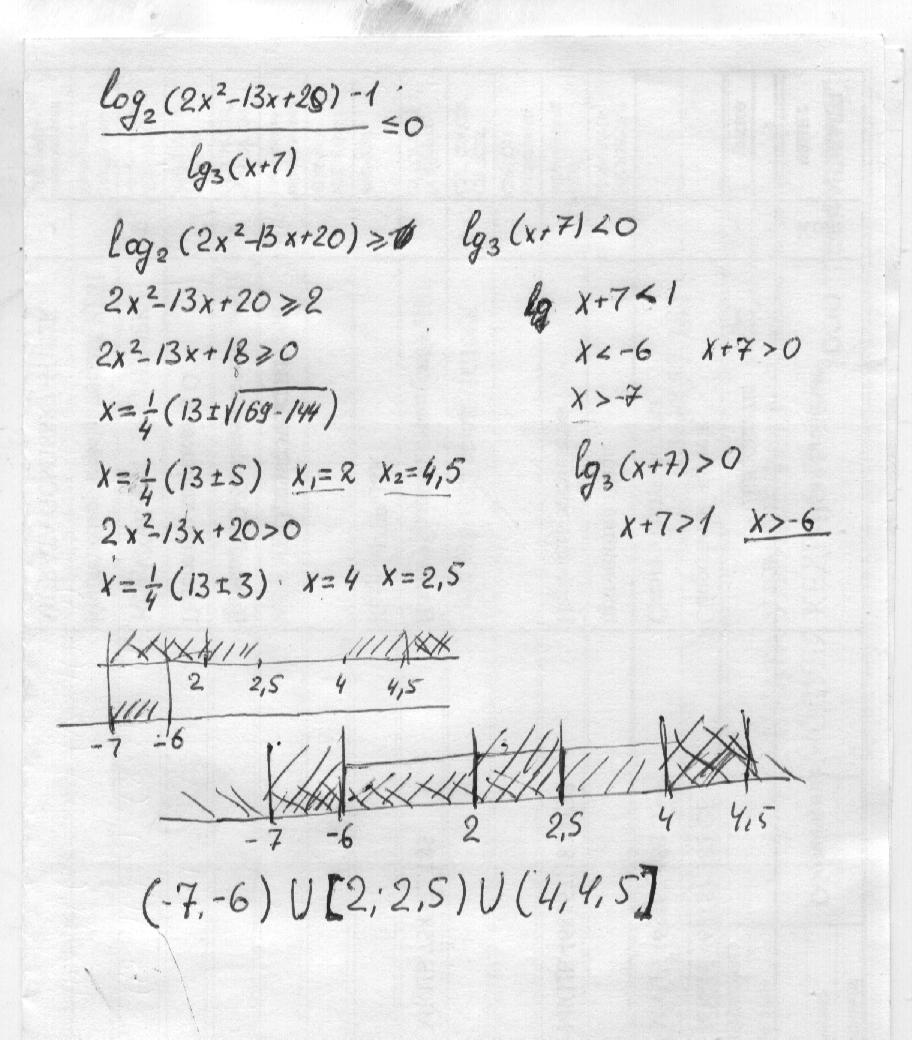 log₂(2x²-13x+20)-1
≤0
lg₃(x+7)
log₂(2x²-13x+20)≥1
lg₃(x+7)<0
2x²-13x+20≥2
lg x+7<1
2x²-13x+18≥0
x<-6 x+7>0
x=1/4(13±√169-144)
x>-7
x=1/4(13±5) x₁=2 x₂=4,5
log₃(x+7)>0
2x²-13x+20>0
x+7>1 x>-6
x=1/4(13±3) x=4 x=2,5
2 2,5 4 4,5
-7 -6
-7 -6 2 2,5 4 4,5
(-7,-6)∪[2;2,5)∪(4,4,5]